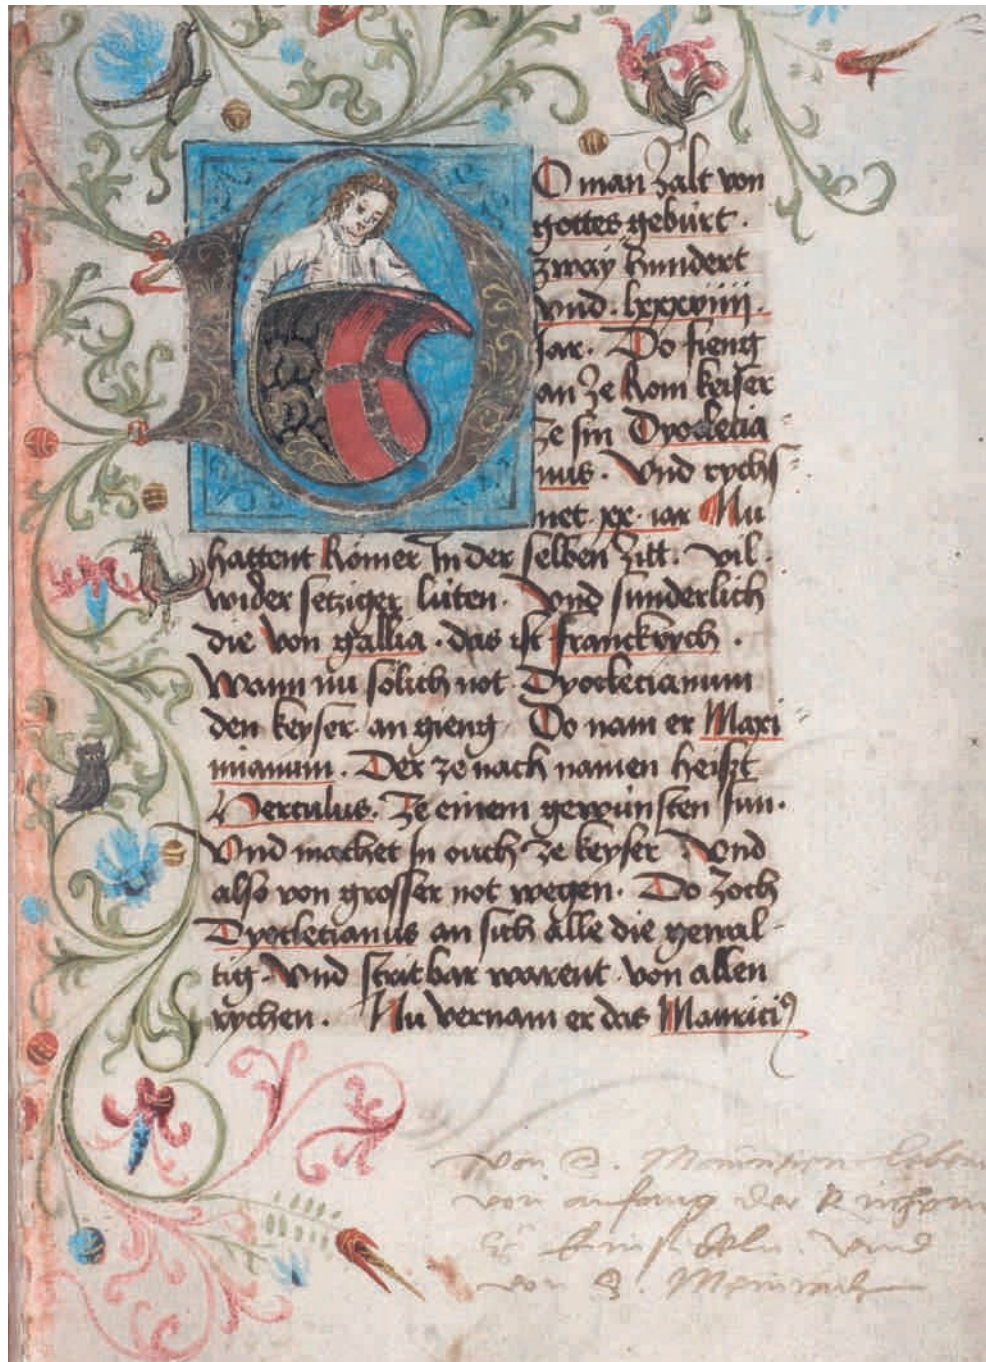 DO man zalt von
gottes gebúrt.
zway hundert
vnd. lxxxviiii.
Jar. Do fieng
an ze Rom keiser
ze sin Dyoclecia
nus. Vnd rychs=
net. xx. iar Nu
hattent Römer In der selben zitt. vil.
wider setziger lúten. Vnd sunderlich
die von gallia. das ist franckrych.
Wann nu sölich not Dyoclecianum
den keyser an gieng Do nam er Maxi=
mianum. Der zo nach namen heisst
Herculus. Ze einem gewúnsten sun.
Vnd machet jn ouch ze keyser. Vnd
also von grosser not wegen. Do zoch
Dyoclecianus an sich alle die gewal-
tig. Vnd stritbar warent von allen
rychen. Nu vernam er das Mauriciꝰ
von S. Mauritzen leben
von anfang der
Einsideln. vnd
von S. Meinrath